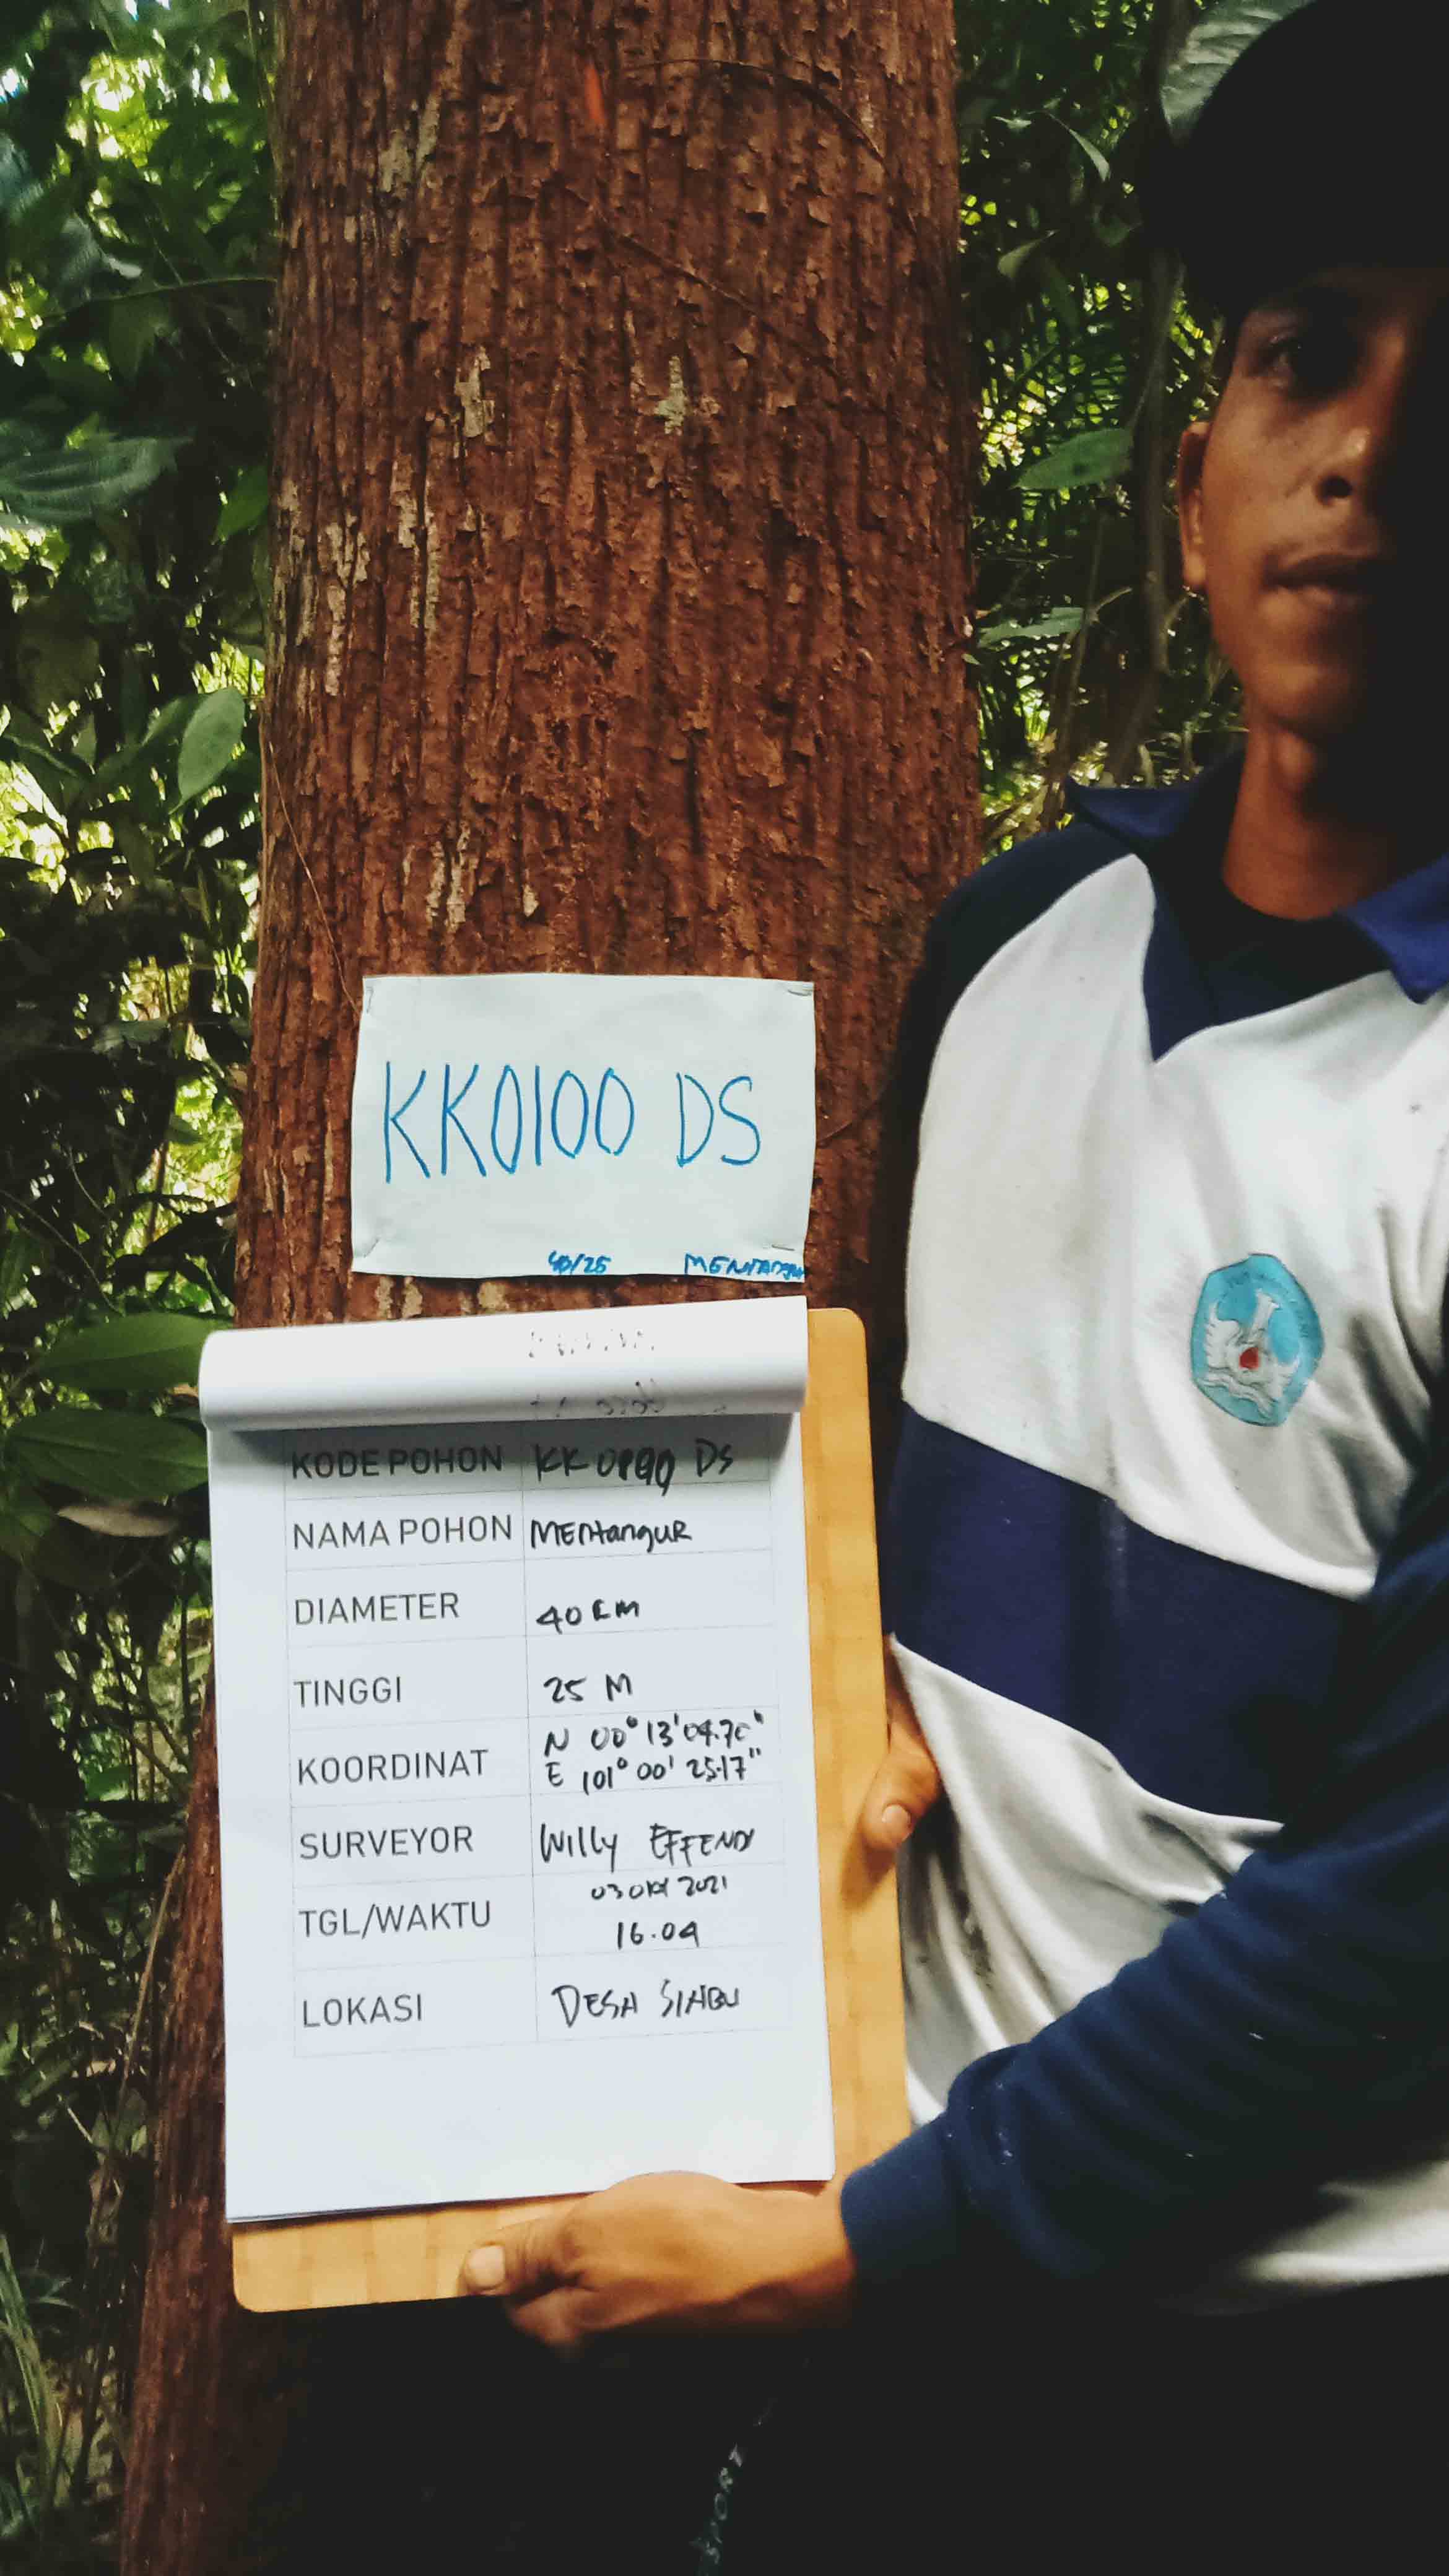 KK0100 DS
40/25 MENTANGUR
KODE POHON DS
NAMA POHON MENtanguR
DIAMETER 40 CM
TINGGI 25 M
KOORDINAT N 00° 13' 04.70"
E 101° 00' 25.17"
SURVEYOR Willy EFFENDY
TGL/WAKTU 03 OKt 2021
16.04
LOKASI DESA SIABU
SPORT